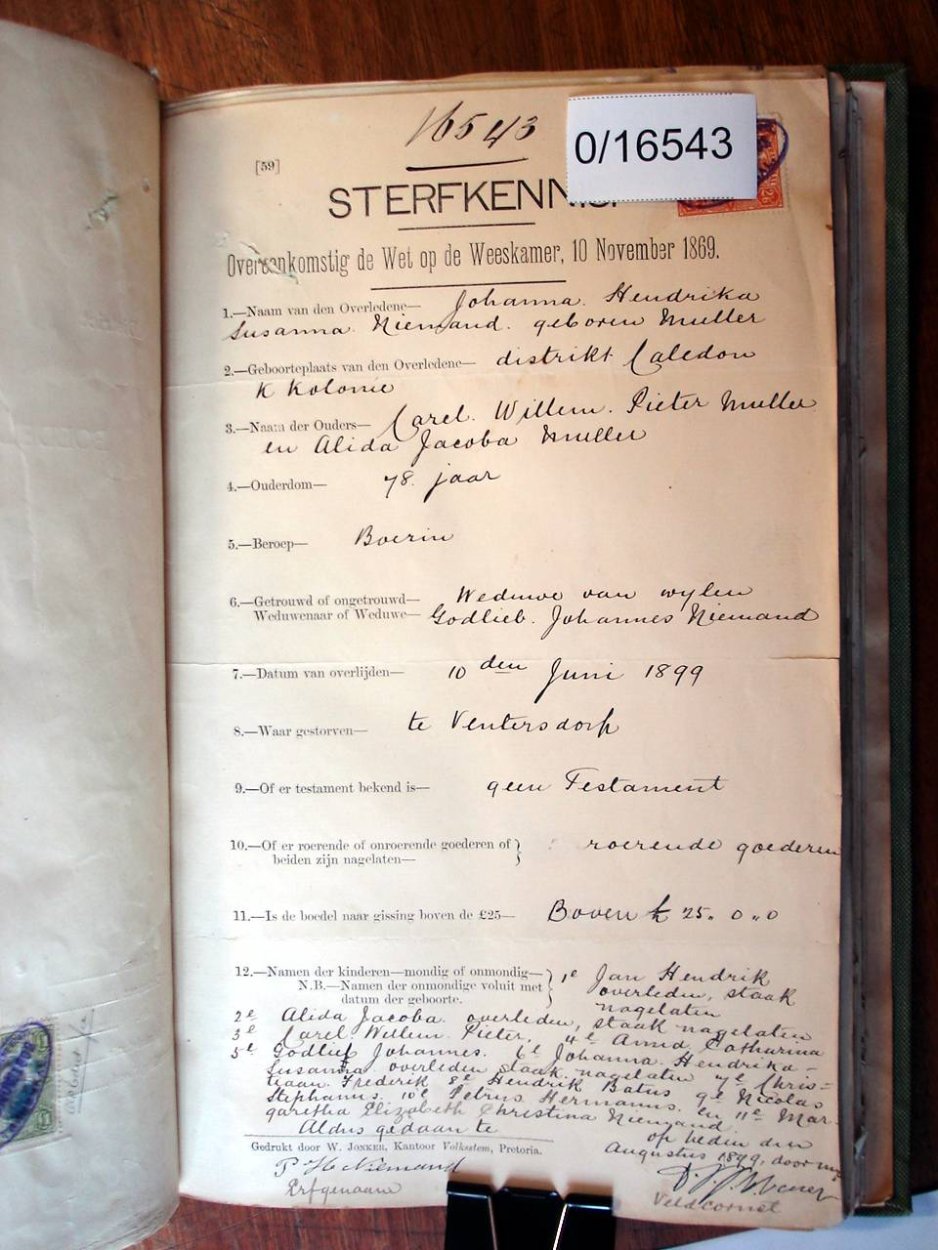 16543
0/16543
[59]
STERFKENNIS
Overeenkomstig de Wet op de Weeskamer, 10 November 1869.
1.—Naam van den Overledene— Johanna Hendrika
Susanna Niemand. geboren Muller
2.—Geboorteplaats van den Overledene— distrikt Caledon
K Kolonie
3.—Naam der Ouders— Carel. Willem. Pieter Muller
en Alida Jacoba Muller
4.—Ouderdom— 78. jaar
5.—Beroep— Boerin
6.—Getrouwd of ongetrouwd— Weduwe van wylen
Weduwenaar of Weduwe— Godlieb. Johannes Niemand
7.—Datum van overlijden— 10 den Juni 1899
8.—Waar gestorven— te Ventersdorp
9.—Of er testament bekend is— geen Testament
10.—Of er roerende of onroerende goederen of } roerende goederen
beiden zijn nagelaten—
11.—Is de boedel naar gissing boven de £25— Boven £ 25. 0 „ 0
12.—Namen der kinderen—mondig of onmondig— } 1e Jan Hendrik
N.B.—Namen der onmondige voluit met overleden, staak
datum der geboorte. nagelaten
2e Alida Jacoba. overleden, staak nagelaten
3e Carel Willem Pieter, 4e Anna Catharina
5e Godlief Johannes. 6e Johanna. Hendrika-
Susanna overleden staak nagelaten 7e Chris=
tiaan. Frederik 8e Hendrik Batus 9e Nicolas
Stephanus. 10e Petrus Hermanus. en 11e Mar-
garetha Elizabeth Christina Niemand.
Aldus gedaan te op heden den
Gedrukt door W. JONKER, Kantoor Volksstem, Pretoria. Augustus 1899, door mij
P H Niemand
Erfgenaam
Veldcornet